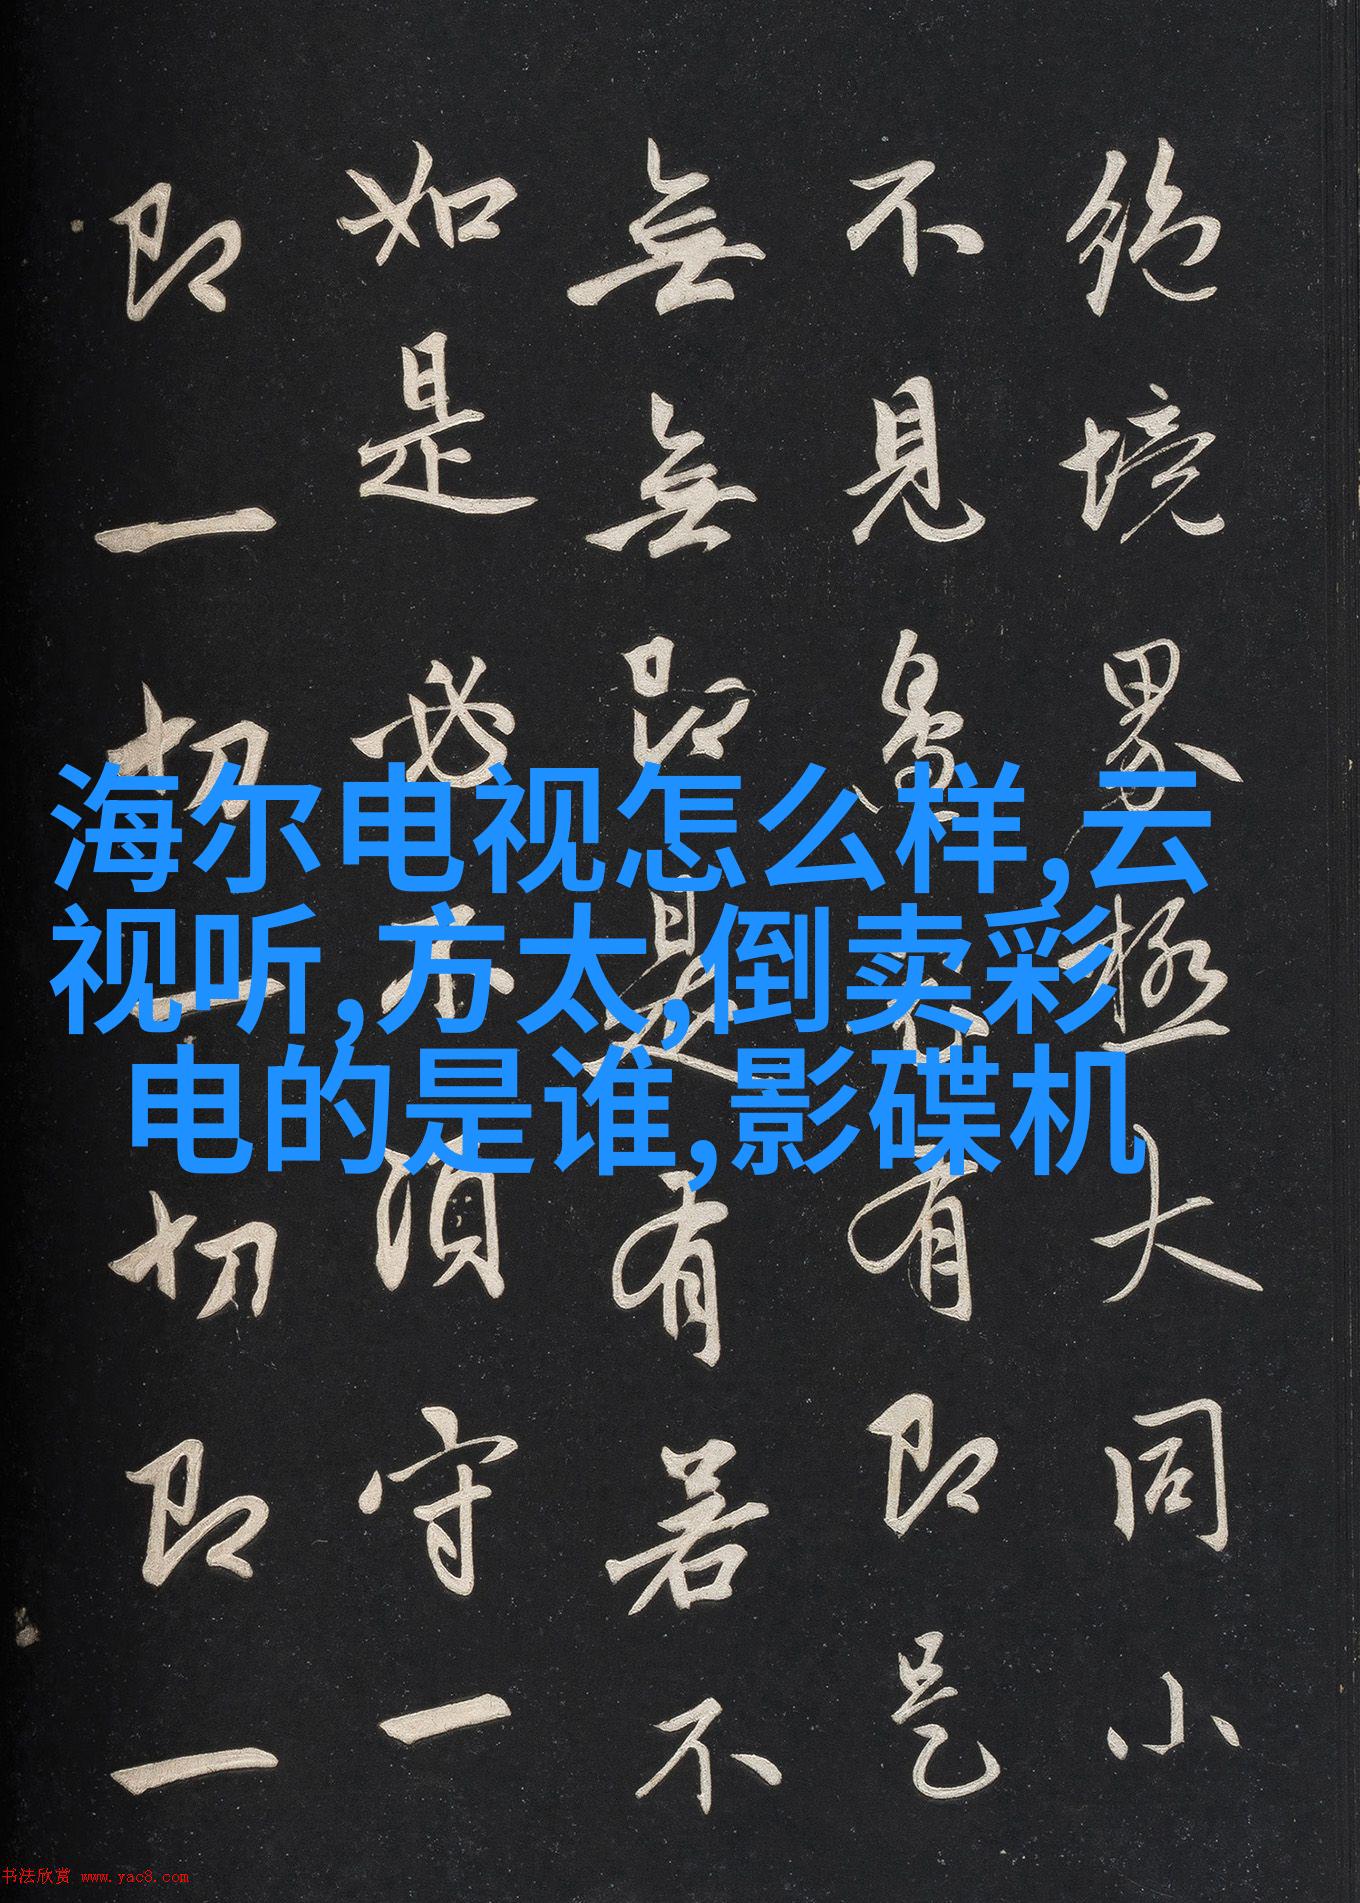 絕境界極大同小
不見邊表有即是
無無即是有若不
如是必不須守一
即一切一切即一
海尔电视怎么样,云
视听,方太,倒卖彩
电的是谁,影碟机
书法欣赏 www.yac8.com